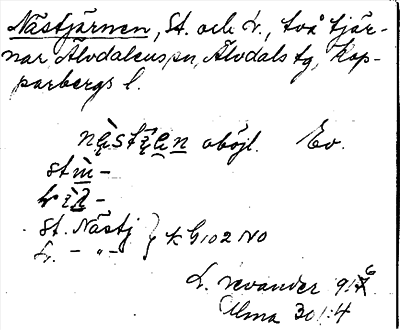 Nästjärnen, St. och L., två tjär-
nar, Älvdalens sn, Älvdals tg, Kop-
parbergs l.
oböjl. Ev.
St. Nästj
L. - " -
} k G102 NO
L. Levander 1916
Ulma 301:4